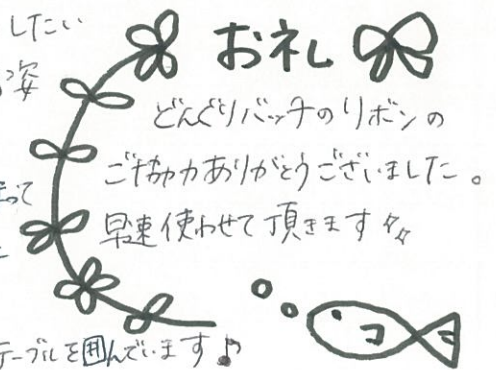 したい
お礼
姿
どんぐりバッチのリボンの
ご協力ありがとうございました。
って
早速使わせて頂きます
テーブルを囲んでいます♪